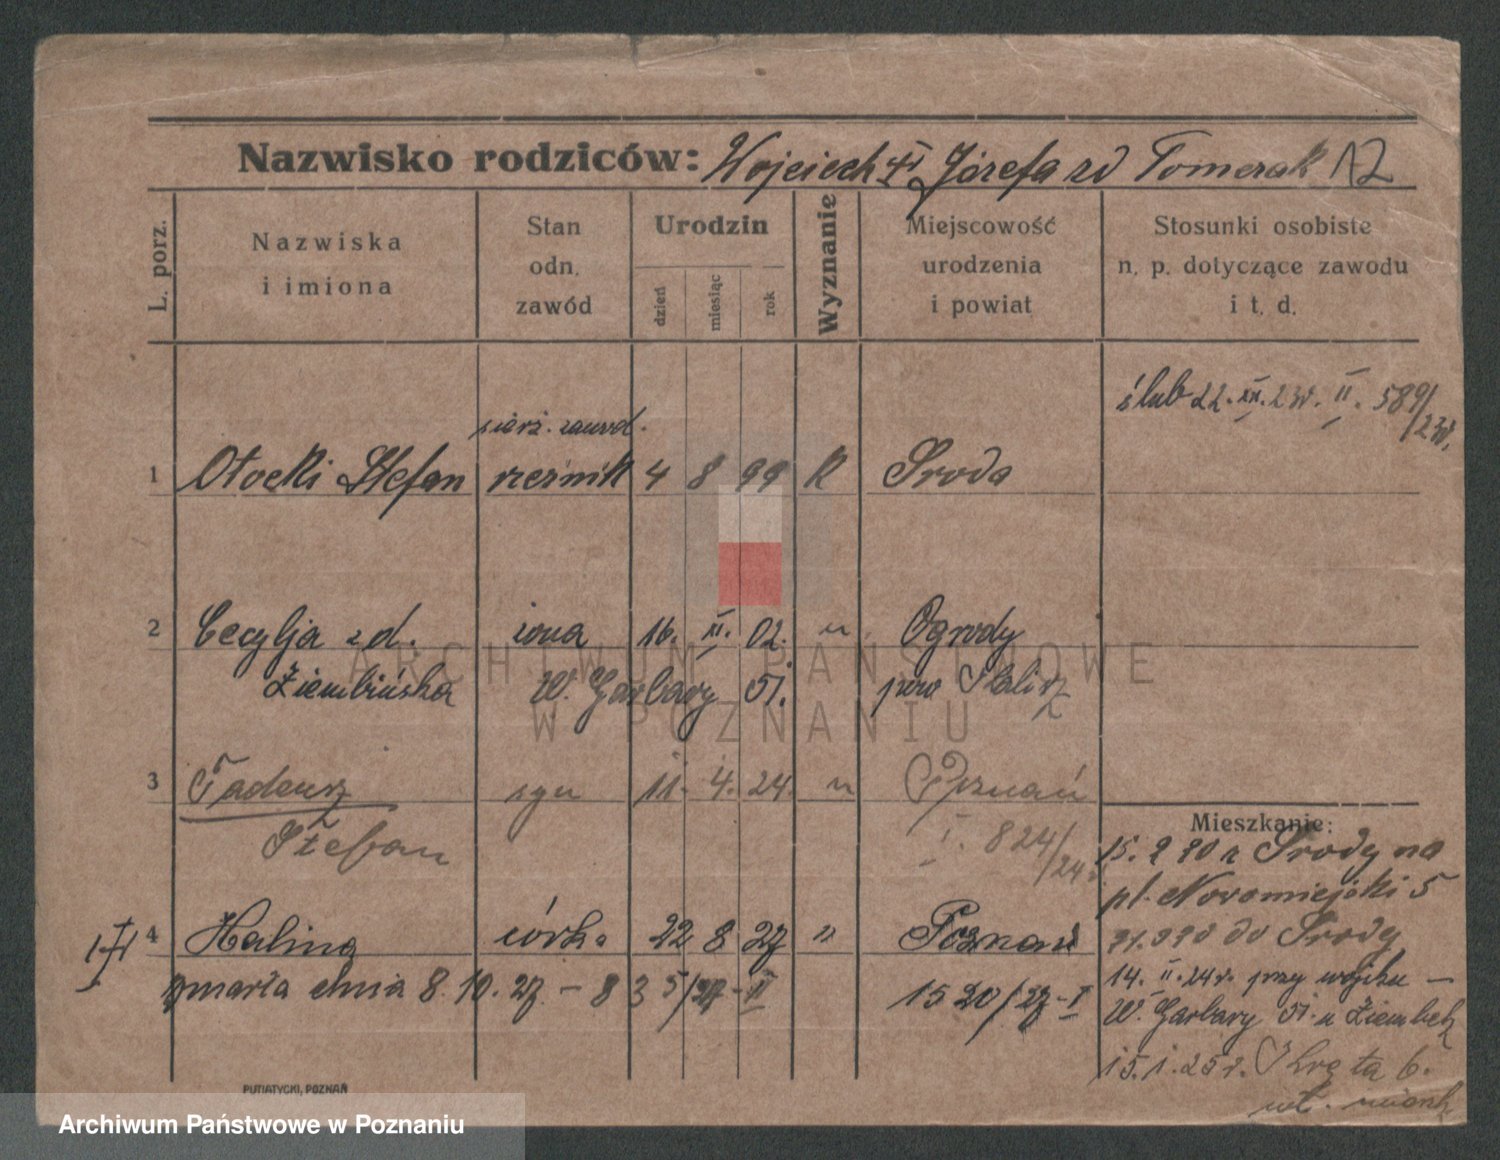 Nazwisko rodziców: Wojciech i Józefa zd Pomerak 12
L. porz.
Nazwiska
i imiona
Stan
odn.
zawód
Urodzin
dzień
miesiąc
rok
Wyznanie
Miejscowość
urodzenia
i powiat
Stosunki osobiste
n. p. dotyczące zawodu
i t. d.
ślub 22. XII. 23r. II. 589/23r.
sierż. zawod.
1 Otocki Stefan rzeźnik 4 8 99 K Środa
2 Cecylja zd. żona 16. XI. 02. " Ogrody
Ziembińska W. Garbary 51. pow Kalisz
3 Tadeusz syn 11. 4. 24. " Poznań
Stefan I. 824/24.
Mieszkanie:
15. 9 20 z Środy na
pl. Nowomiejski 5
4 Halina córka 22 8 27 " Poznań
do Środy
zmarła dnia 8. 10. 27 - 835/27-II 1520/27-I
14. II. 24r. przy wojsku -
W. Garbary 51. u Ziembek
15. 1. 25r. Kręta 6.
wł. mieszk.
PUTIATYCKI, POZNAŃ
ARCHIWUM PAŃSTWOWE
W POZNANIU
Archiwum Państwowe w Poznaniu